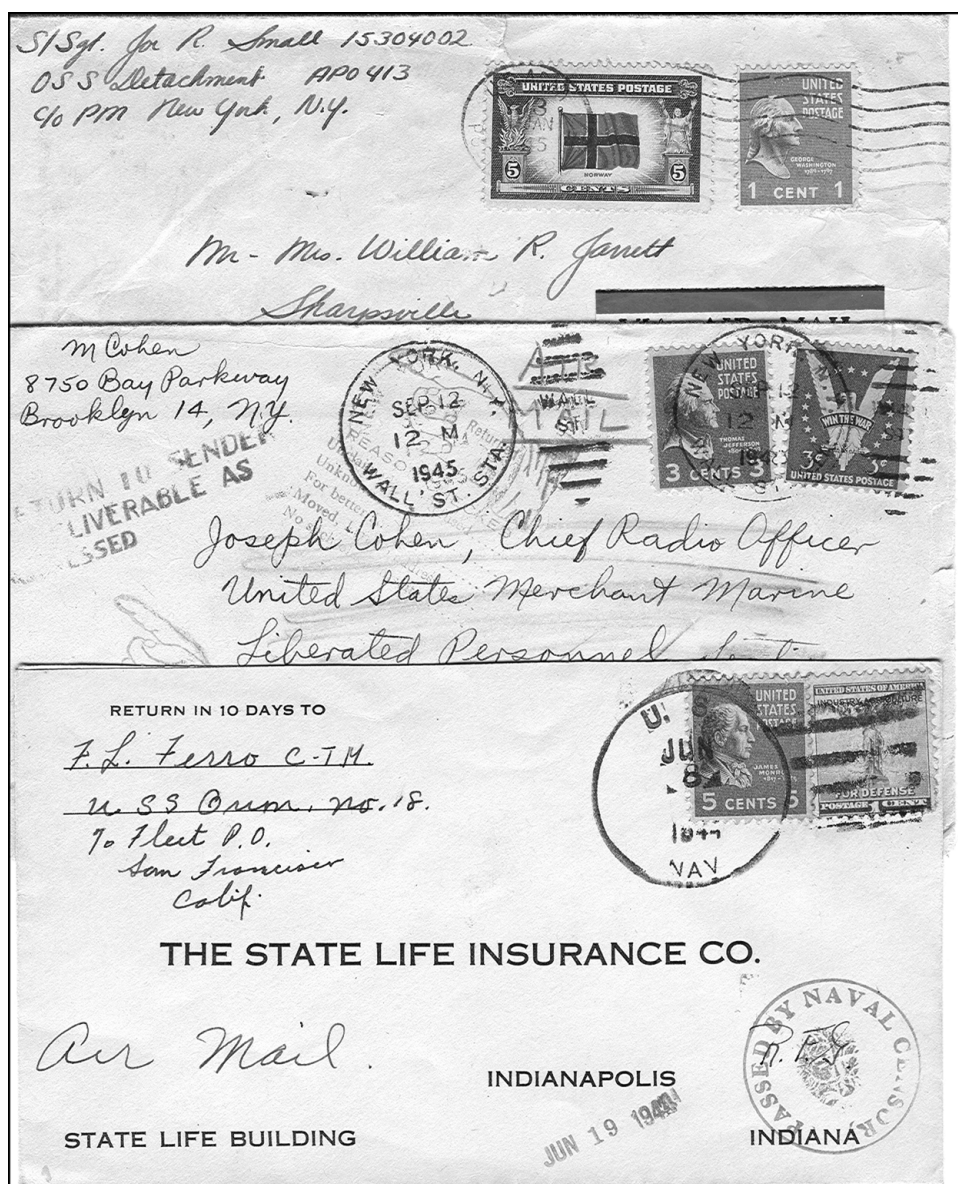 S/Sgt. Joe R. Small 15304002
OSS Detachment APO 413
c/o PM New York, N.Y.
UNITED STATES POSTAGE
NORWAY
5 5
CENTS
UNITED
STATES
POSTAGE
GEORGE
WASHINGTON
1 CENT 1
Mr - Mrs. William R. Jarrett
Sharpsville
M Cohen
8750 Bay Parkway
Brooklyn 14, N.Y.
NEW YORK, N.Y.
SEP 12
12 M
1945
WALL ST. STA.
AIR
MAIL
WALL
ST
UNITED
STATES
POSTAGE
THOMAS
JEFFERSON
3 CENTS 3
NEW YORK, N.
SEP 12
12 M
WIN THE WAR
3¢ 3¢
UNITED STATES POSTAGE
TURN TO SENDER
LIVERABLE AS
ESSED
Return
Unkn
For better
Moved, L
Joseph Cohen, Chief Radio Officer
United States Merchant Marine
Liberated Personnel
RETURN IN 10 DAYS TO
F. L. Ferro C-TM.
U SS no. 18.
To Fleet P.O.
San Francisco
Calif.
U. S
JUN
8
1944
NAV
UNITED
STATES
POSTAGE
JAMES
MONR
5 CENTS 5
UNITED STATES OF AMERICA
INDUSTRY AGRICULTURE
FOR DEFENSE
POSTAGE 1 CENT
THE STATE LIFE INSURANCE CO.
Air Mail.
PASSED BY NAVAL CENSOR
INDIANAPOLIS
JUN 19 1944
STATE LIFE BUILDING
INDIANA